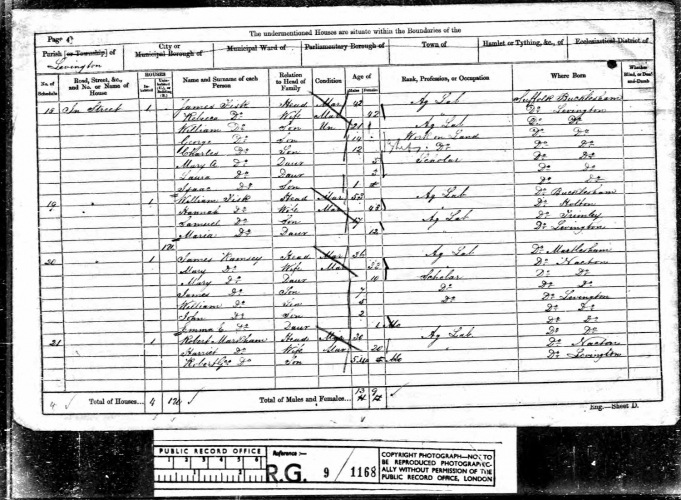 The undermentioned Houses are situate within the Boundaries of the
Page 4
Parish [or Township] of
Levington
City or
Municipal Borough of
Municipal Ward of
Parliamentary Borough of
Town of
Hamlet or Tything, &c., of
Ecclesiastical District of
No. of Schedule
Road, Street, &c., and No. or Name of House
HOUSES
Name and Surname of each Person
Relation to Head of Family
Condition
Age of
Males Females
Rank, Profession, or Occupation
Where Born
Whether Blind, or Deaf-and-Dumb
18 In Street 1 James Fisk Head Mar 42 Ag Lab Suffolk Bucklesham
Rebecca Do Wife Mar 42 Do Levington
William Do Son Un 21 Ag Lab Do Do
George Do Son 14 Work on Land Do Do
Charles Do Son 12 Do Do Do
Mary A Do Daur 5 Scholar Do Do
Laura Do Daur Do Do
Isaac Do Son 1 Do Do
19 " 1 William Fisk Head Mar 52 Ag Lab Do Bucklesham
Hannah Do Wife Mar 43 Do Holton
Samuel Do Son 17 Ag Lab Do Trimley
Maria Do Daur 12 Do Levington
20 " 1 James Ramsey Head Mar 36 Ag Lab Do Martlesham
Mary Do Wife Mar 32 Do Nacton
Mary Do Daur 10 Scholar Do Do
James Do Son 7 Do Do Do
William Do Son 5 Do Do Levington
John Do Son 2 Do Do
Emma E Do Daur 1 Mo Do Do
21 1 Robert Markham Head Mar 20 Ag Lab Do Do
Harriet Do Wife Mar 20 Do Nacton
Robert Geo Do Son 5 Mo Do Levington
4 Total of Houses... 4 Total of Males and Females...
Eng.—Sheet D.
PUBLIC RECORD OFFICE
1 2 3 4 5 6
1 2
Reference :-
R.G. 9 / 1168
COPYRIGHT PHOTOGRAPH—NOT TO
BE REPRODUCED PHOTOGRAPHIC-
ALLY WITHOUT PERMISSION OF THE
PUBLIC RECORD OFFICE, LONDON